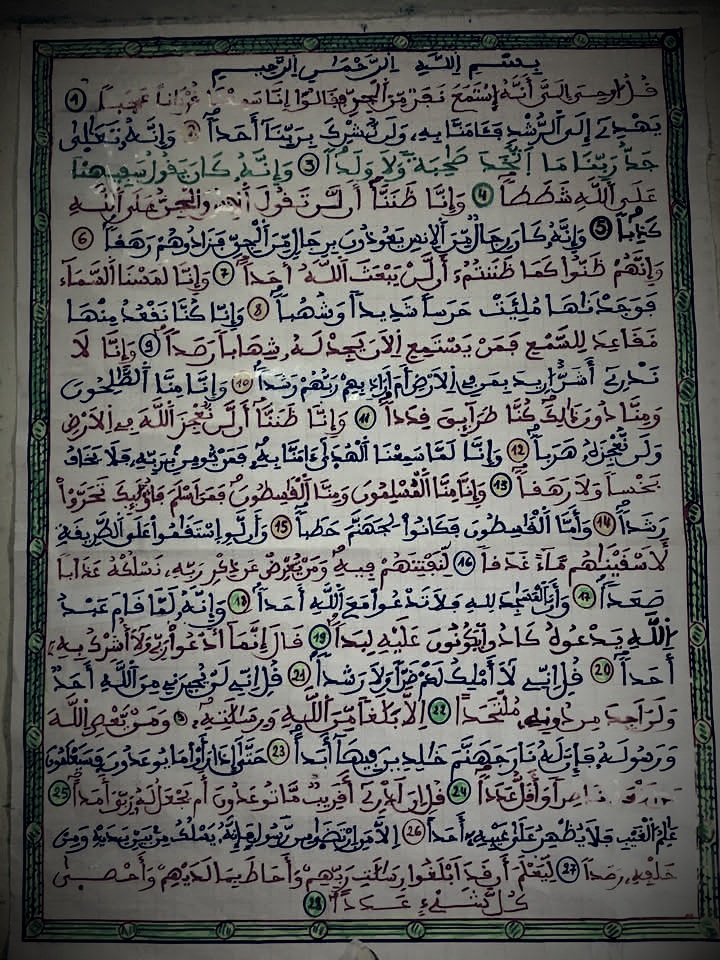 بِسْمِ اللَّهِ الرَّحْمَٰنِ الرَّحِيمِ
قُلُ اوحِىَ إِلَىَّ أَنَّهُ اُسْتَمَعَ نَفَرٌ مِّنَ ألْجِنِّ فَقَالُوٓا إِنَّا سَمِعْنَا قُرْءَاناً عَجَباً 1
يَهْدِےٓ إِلَى ألرُّشْدِ فَـَٔامَنَّا بِهِۦ وَلَن نُّشْرِكَ بِرَبِّنَآ أَحَداً 2 وَإِنَّهُۥ تَعَٰلَىٰ
جَدُّ رَبِّنَا مَا اَتَّخَذَ صَٰحِبَةً وَلَا وَلَداً 3 وَإِنَّهُۥ كَانَ يَقُولُ سَفِيهُنَا
عَلَى أللَّهِ شَطَطاً 4 وَإِنَّا ظَنَنَّآ أَن لَّن تَقُولَ ألِانسُ وَالْجِنُّ عَلَى أللَّهِ
كَذِباً 5 وَإِنَّهُۥ كَانَ رِجَالٌ مِّنَ ألِانسِ يَعُوذُونَ بِرِجَالٍ مِّنَ ألْجِنِّ فَزَادُوهُمْ رَهَقاً 6
وَإِنَّهُمْ ظَنُّوا كَمَا ظَنَنتُمُۥٓ أَن لَّنْ يَّبْعَثَ أللَّهُ أَحَداً 7 وَإِنَّا لَمَسْنَا ألسَّمَآءَ
فَوَجَدْنَٰهَا مُلِئَتْ حَرَساً شَدِيداً وَشُهُباً 8 وَإِنَّا كُنَّا نَقْعُدُ مِنْهَا
مَقَٰعِدَ لِلسَّمْعِ فَمَنْ يَّسْتَمِعِ ألَانَ يَجِدْ لَهُۥ شِهَاباً رَّصَداً 9 وَإِنَّا لَا
نَدْرِےٓ أَشَرٌّ ارِيدَ بِمَن فِے ألَارْضِ أَمَ اَرَادَ بِهِمْ رَبُّهُمْ رَشَداً 10 وَإِنَّا مِنَّا ألصَّٰلِحُونَ
وَمِنَّا دُونَ ذَٰلِكَ كُنَّا طَرَآئِقَ قِدَداً 11 وَإِنَّا ظَنَنَّآ أَن لَّن نُّعْجِزَ أللَّهَ فِے ألَارْضِ
وَلَن نُّعْجِزَهُۥ هَرَباً 12 وَإِنَّا لَمَّا سَمِعْنَا ألْهُدَىٰٓ ءَامَنَّا بِهِۦ فَمَنْ يُّومِنۢ بِرَبِّهِۦ فَلَا يَخَافُ
بَخْساً وَلَا رَهَقاً 13 وَإِنَّا مِنَّا ألْمُسْلِمُونَ وَمِنَّا ألْقَٰسِطُونَ فَمَنَ اَسْلَمَ فَأُوْلَٰٓئِكَ تَحَرَّوْا
رَشَداً 14 وَأَمَّا ألْقَٰسِطُونَ فَكَانُوا لِجَهَنَّمَ حَطَباً 15 وَأَن لَّوِ اِسْتَقَٰمُوا عَلَى ألطَّرِيقَةِ
لَأَسْقَيْنَٰهُم مَّآءً غَدَقاً 16 لِّنَفْتِنَهُمْ فِيهِ وَمَنْ يُّعْرِضْ عَن ذِكْرِ رَبِّهِۦ نَسْلُكْهُ عَذَاباً
صَعَداً 17 وَأَنَّ ألْمَسَٰجِدَ لِلهِ فَلَا تَدْعُوا مَعَ أللَّهِ أَحَداً 18 وَإِنَّهُۥ لَمَّا قَامَ عَبْدُ
أللَّهِ يَدْعُوهُ كَادُوا يَكُونُونَ عَلَيْهِ لِبَداً 19 قَالَ إِنَّمَآ أَدْعُوا رَبِّے وَلَآ أُشْرِكُ بِهِۦٓ
أَحَداً 20 قُلِ اِنِّے لَآ أَمْلِكُ لَكُمْ ضَرّاً وَلَا رَشَداً 21 قُلِ اِنِّے لَنْ يُّجِيرَنِے مِنَ أللَّهِ أَحَدٌ
وَلَنَ اَجِدَ مِن دُونِهِۦ مُلْتَحَداً 22 اِلَّا بَلَٰغاً مِّنَ أللَّهِ وَرِسَٰلَٰتِهِۦ وَمَنْ يَّعْصِ أللَّهَ
وَرَسُولَهُۥ فَإِنَّ لَهُۥ نَارَ جَهَنَّمَ خَٰلِدِينَ فِيهَآ أَبَداً 23 حَتَّىٰٓ إِذَا رَأَوْا مَا يُوعَدُونَ فَسَيَعْلَمُونَ
نَاصِراً وَأَقَلُّ عَدَداً 24 قُلِ اِنَ اَدْرِےٓ أَقَرِيبٌ مَّا تُوعَدُونَ أَمْ يَجْعَلُ لَهُۥ رَبِّيَ أَمَداً 25
عَٰلِمُ ألْغَيْبِ فَلَا يُظْهِرُ عَلَىٰ غَيْبِهِۦٓ أَحَداً 26 اِلَّا مَنِ اِرْتَضَىٰ مِن رَّسُولٍ فَإِنَّهُۥ يَسْلُكُ مِنۢ بَيْنِ يَدَيْهِ وَمِنْ
خَلْفِهِۦ رَصَداً 27 لِّيَعْلَمَ أَن قَدَ اَبْلَغُوا رِسَٰلَٰتِ رَبِّهِمْ وَأَحَاطَ بِمَا لَدَيْهِمْ وَأَحْصَىٰ
كُلَّ شَےْءٍ عَدَداً 28